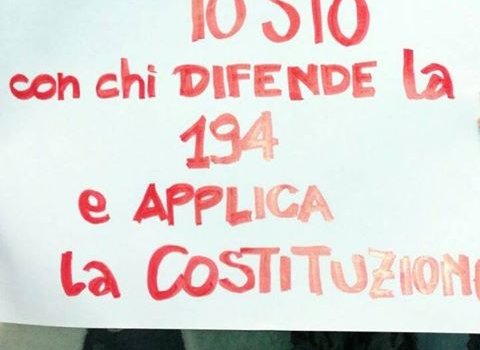 IO STO
con chi DIFENDE la
194
e APPLICA
la COSTITUZIONE